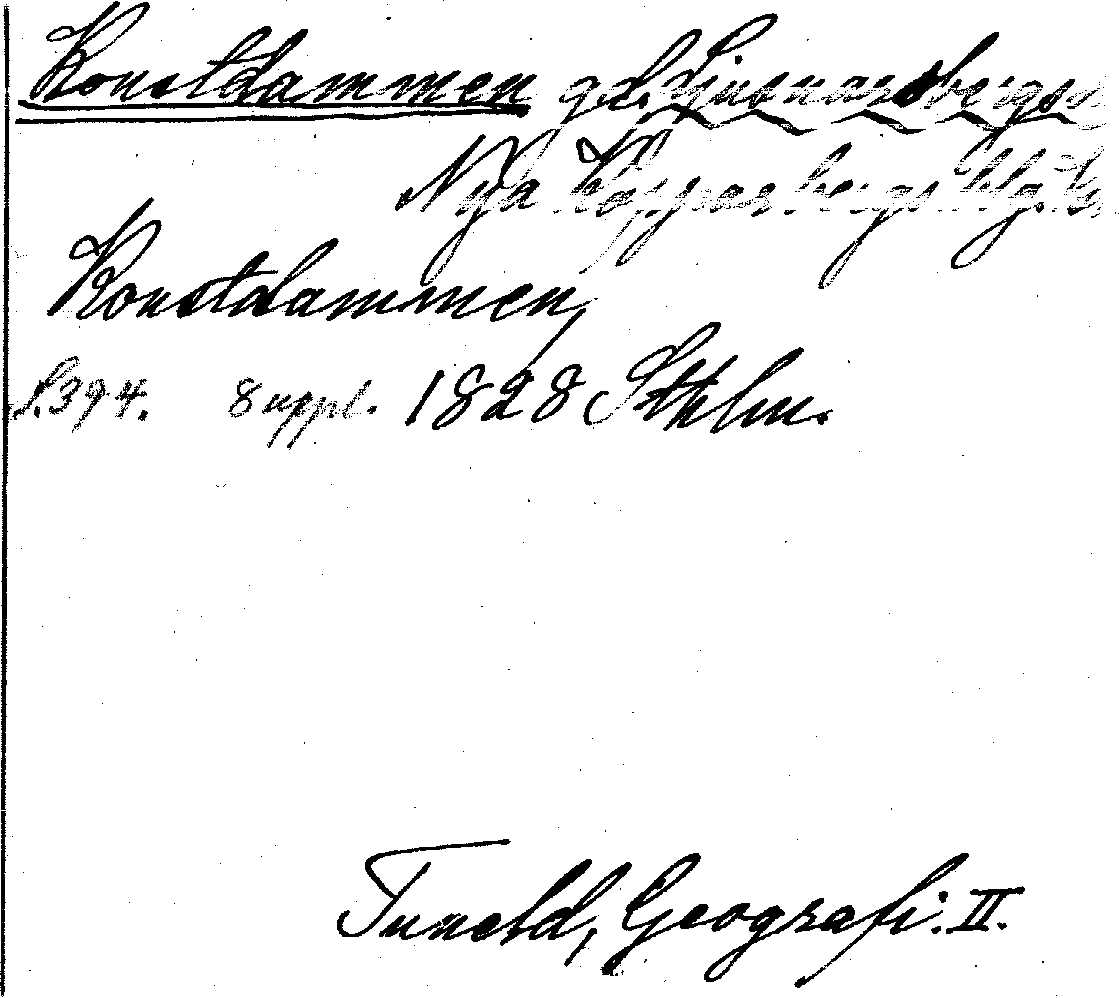 Konstdammen gd. Ljusnarsbergs s
Nya Kopparbergs blg.
Konstdammen,
S. 394. 8 uppl. 1828 Sthlm.
Tuneld, Geografi. II.